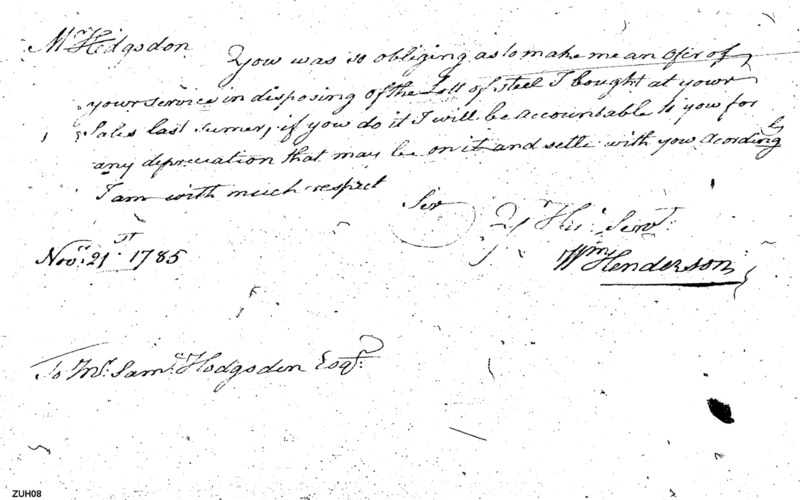 Mr Hidgsdon
Yow was so obliging as to make me an ofir of
yowr service in disposing of the Lott of steel I bought at yowr
Sales last sumer, if yow do it I will be accountable to yow for
any depreciation that may be on it and settle with yow acordingly
I am with much respect
Sir
Yr Hu: Servt.
Wm Henderson
Novr. 21st 1785
To Mr. Saml. Hodgsden Esqr.
ZUH08